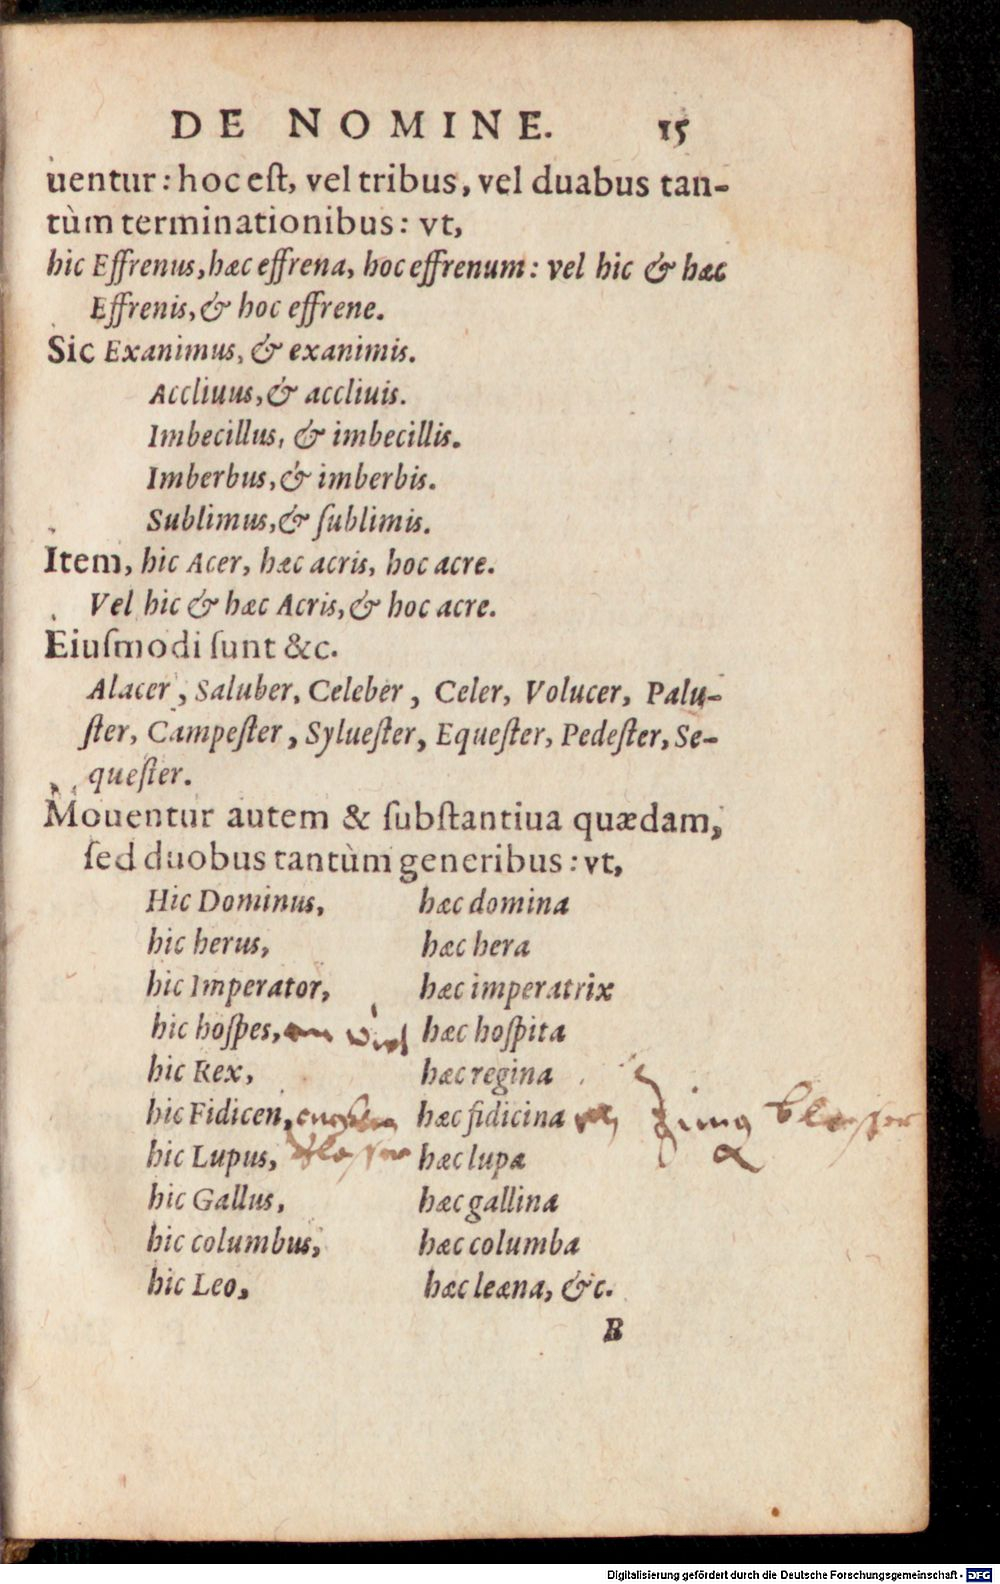 DE NOMINE. 15
uentur: hoc eſt, vel tribus, vel duabus tan-
tùm terminationibus: vt,
hic Effrenus, hæc effrena, hoc effrenum: vel hic & hæc
Effrenis, & hoc effrene.
Sic Exanimus, & exanimis.
Accliuus, & accliuis.
Imbecillus, & imbecillis.
Imberbus, & imberbis.
Sublimus, & ſublimis.
Item, hic Acer, hæc acris, hoc acre.
Vel hic & hæc Acris, & hoc acre.
Eiuſmodi ſunt &c.
Alacer, Saluber, Celeber, Celer, Volucer, Palu-
ſter, Campeſter, Sylueſter, Equeſter, Pedeſter, Se-
queſter.
Mouentur autem & ſubſtantiua quædam,
ſed duobus tantùm generibus: vt,
Hic Dominus, hæc domina
hic herus, hæc hera
hic Imperator, hæc imperatrix
hic hoſpes, hæc hoſpita
hic Rex, hæc regina
hic Fidicen, hæc fidicina
hic Lupus, hæc lupa
hic Gallus, hæc gallina
hic columbus, hæc columba
hic Leo, hæc leæna, &c.
B
Digitalisierung gefördert durch die Deutsche Forschungsgemeinschaft - DFG